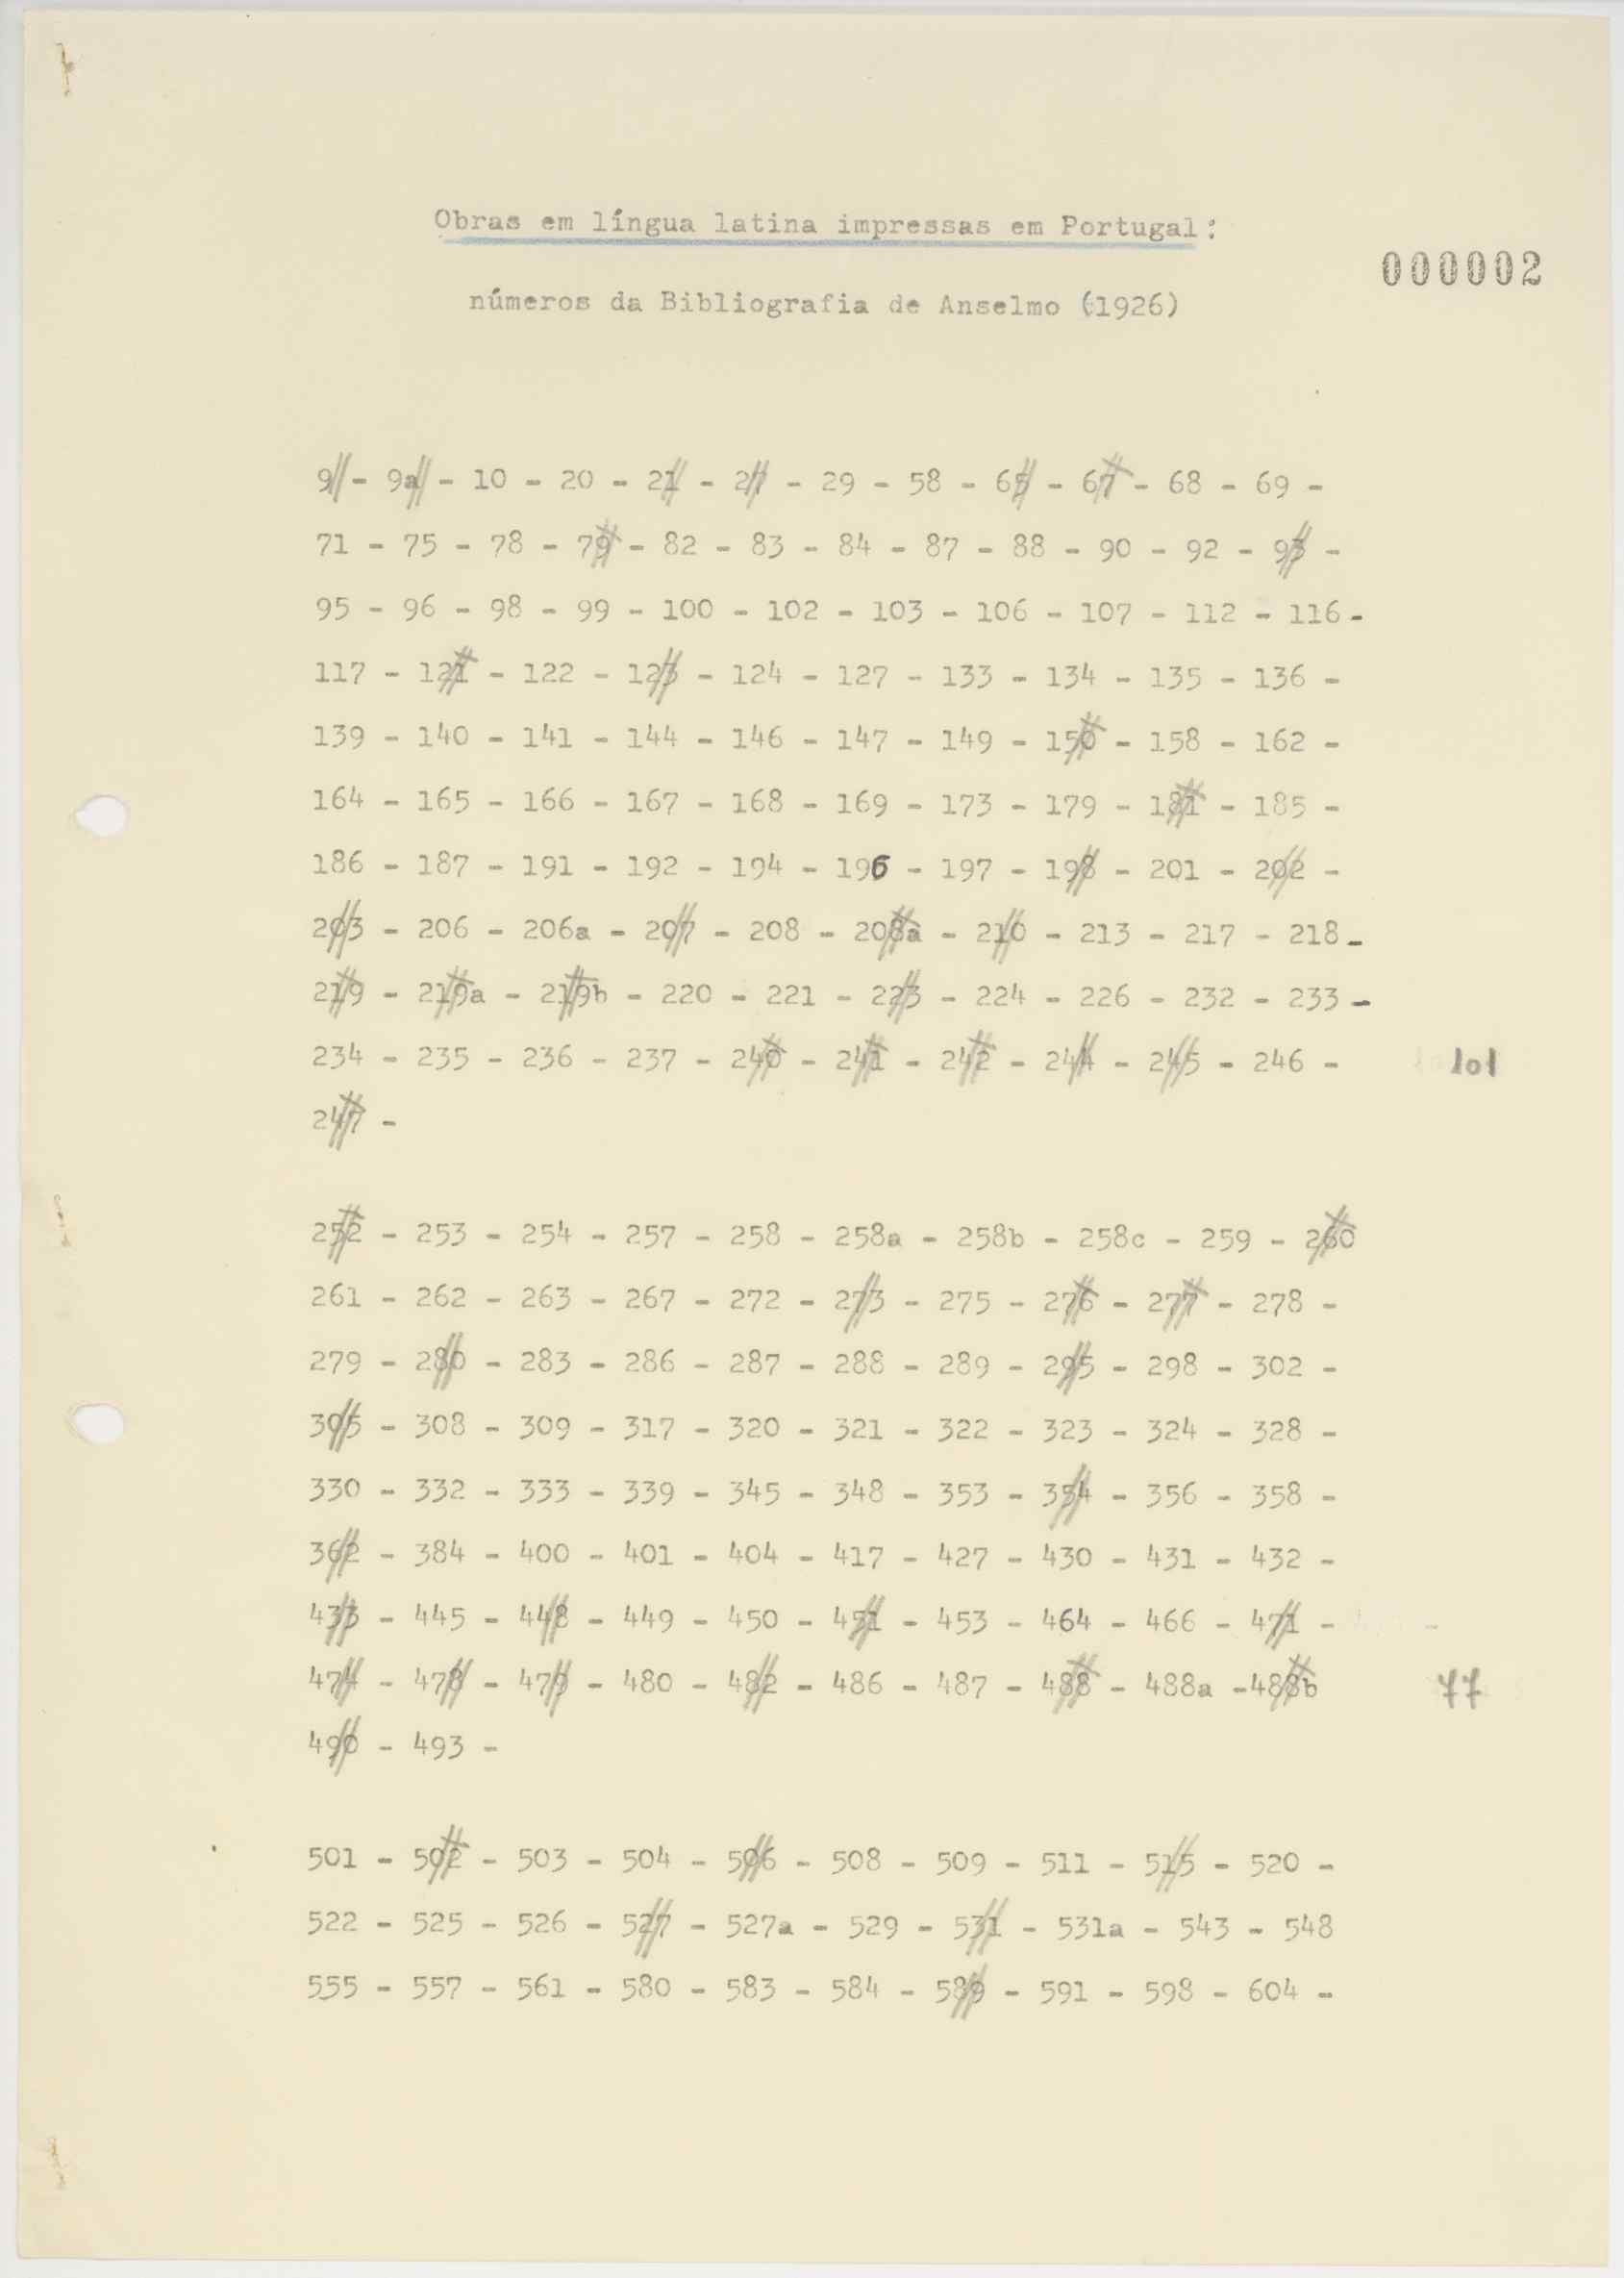 Obras em língua latina impressas em Portugal:
000002
números da Bibliografia de Anselmo (1926)
9 - 9a - 10 - 20 - 21 - 27 - 29 - 58 - 65 - 67 - 68 - 69 -
71 - 75 - 78 - 79 - 82 - 83 - 84 - 87 - 88 - 90 - 92 - 93 -
95 - 96 - 98 - 99 - 100 - 102 - 103 - 106 - 107 - 112 - 116 -
117 - 121 - 122 - 123 - 124 - 127 - 133 - 134 - 135 - 136 -
139 - 140 - 141 - 144 - 146 - 147 - 149 - 150 - 158 - 162 -
164 - 165 - 166 - 167 - 168 - 169 - 173 - 179 - 181 - 185 -
186 - 187 - 191 - 192 - 194 - 196 - 197 - 198 - 201 - 202 -
203 - 206 - 206a - 207 - 208 - 208a - 210 - 213 - 217 - 218 -
219 - 219a - 219b - 220 - 221 - 223 - 224 - 226 - 232 - 233 -
234 - 235 - 236 - 237 - 240 - 241 - 242 - 244 - 245 - 246 - 101
247 -
252 - 253 - 254 - 257 - 258 - 258a - 258b - 258c - 259 - 260
261 - 262 - 263 - 267 - 272 - 273 - 275 - 276 - 277 - 278 -
279 - 280 - 283 - 286 - 287 - 288 - 289 - 295 - 298 - 302 -
305 - 308 - 309 - 317 - 320 - 321 - 322 - 323 - 324 - 328 -
330 - 332 - 333 - 339 - 345 - 348 - 353 - 354 - 356 - 358 -
362 - 384 - 400 - 401 - 404 - 417 - 427 - 430 - 431 - 432 -
433 - 445 - 448 - 449 - 450 - 451 - 453 - 464 - 466 - 471 -
474 - 478 - 479 - 480 - 482 - 486 - 487 - 488 - 488a - 488b 77
490 - 493 -
501 - 502 - 503 - 504 - 506 - 508 - 509 - 511 - 515 - 520 -
522 - 525 - 526 - 527 - 527a - 529 - 531 - 531a - 543 - 548
555 - 557 - 561 - 580 - 583 - 584 - 589 - 591 - 598 - 604 -